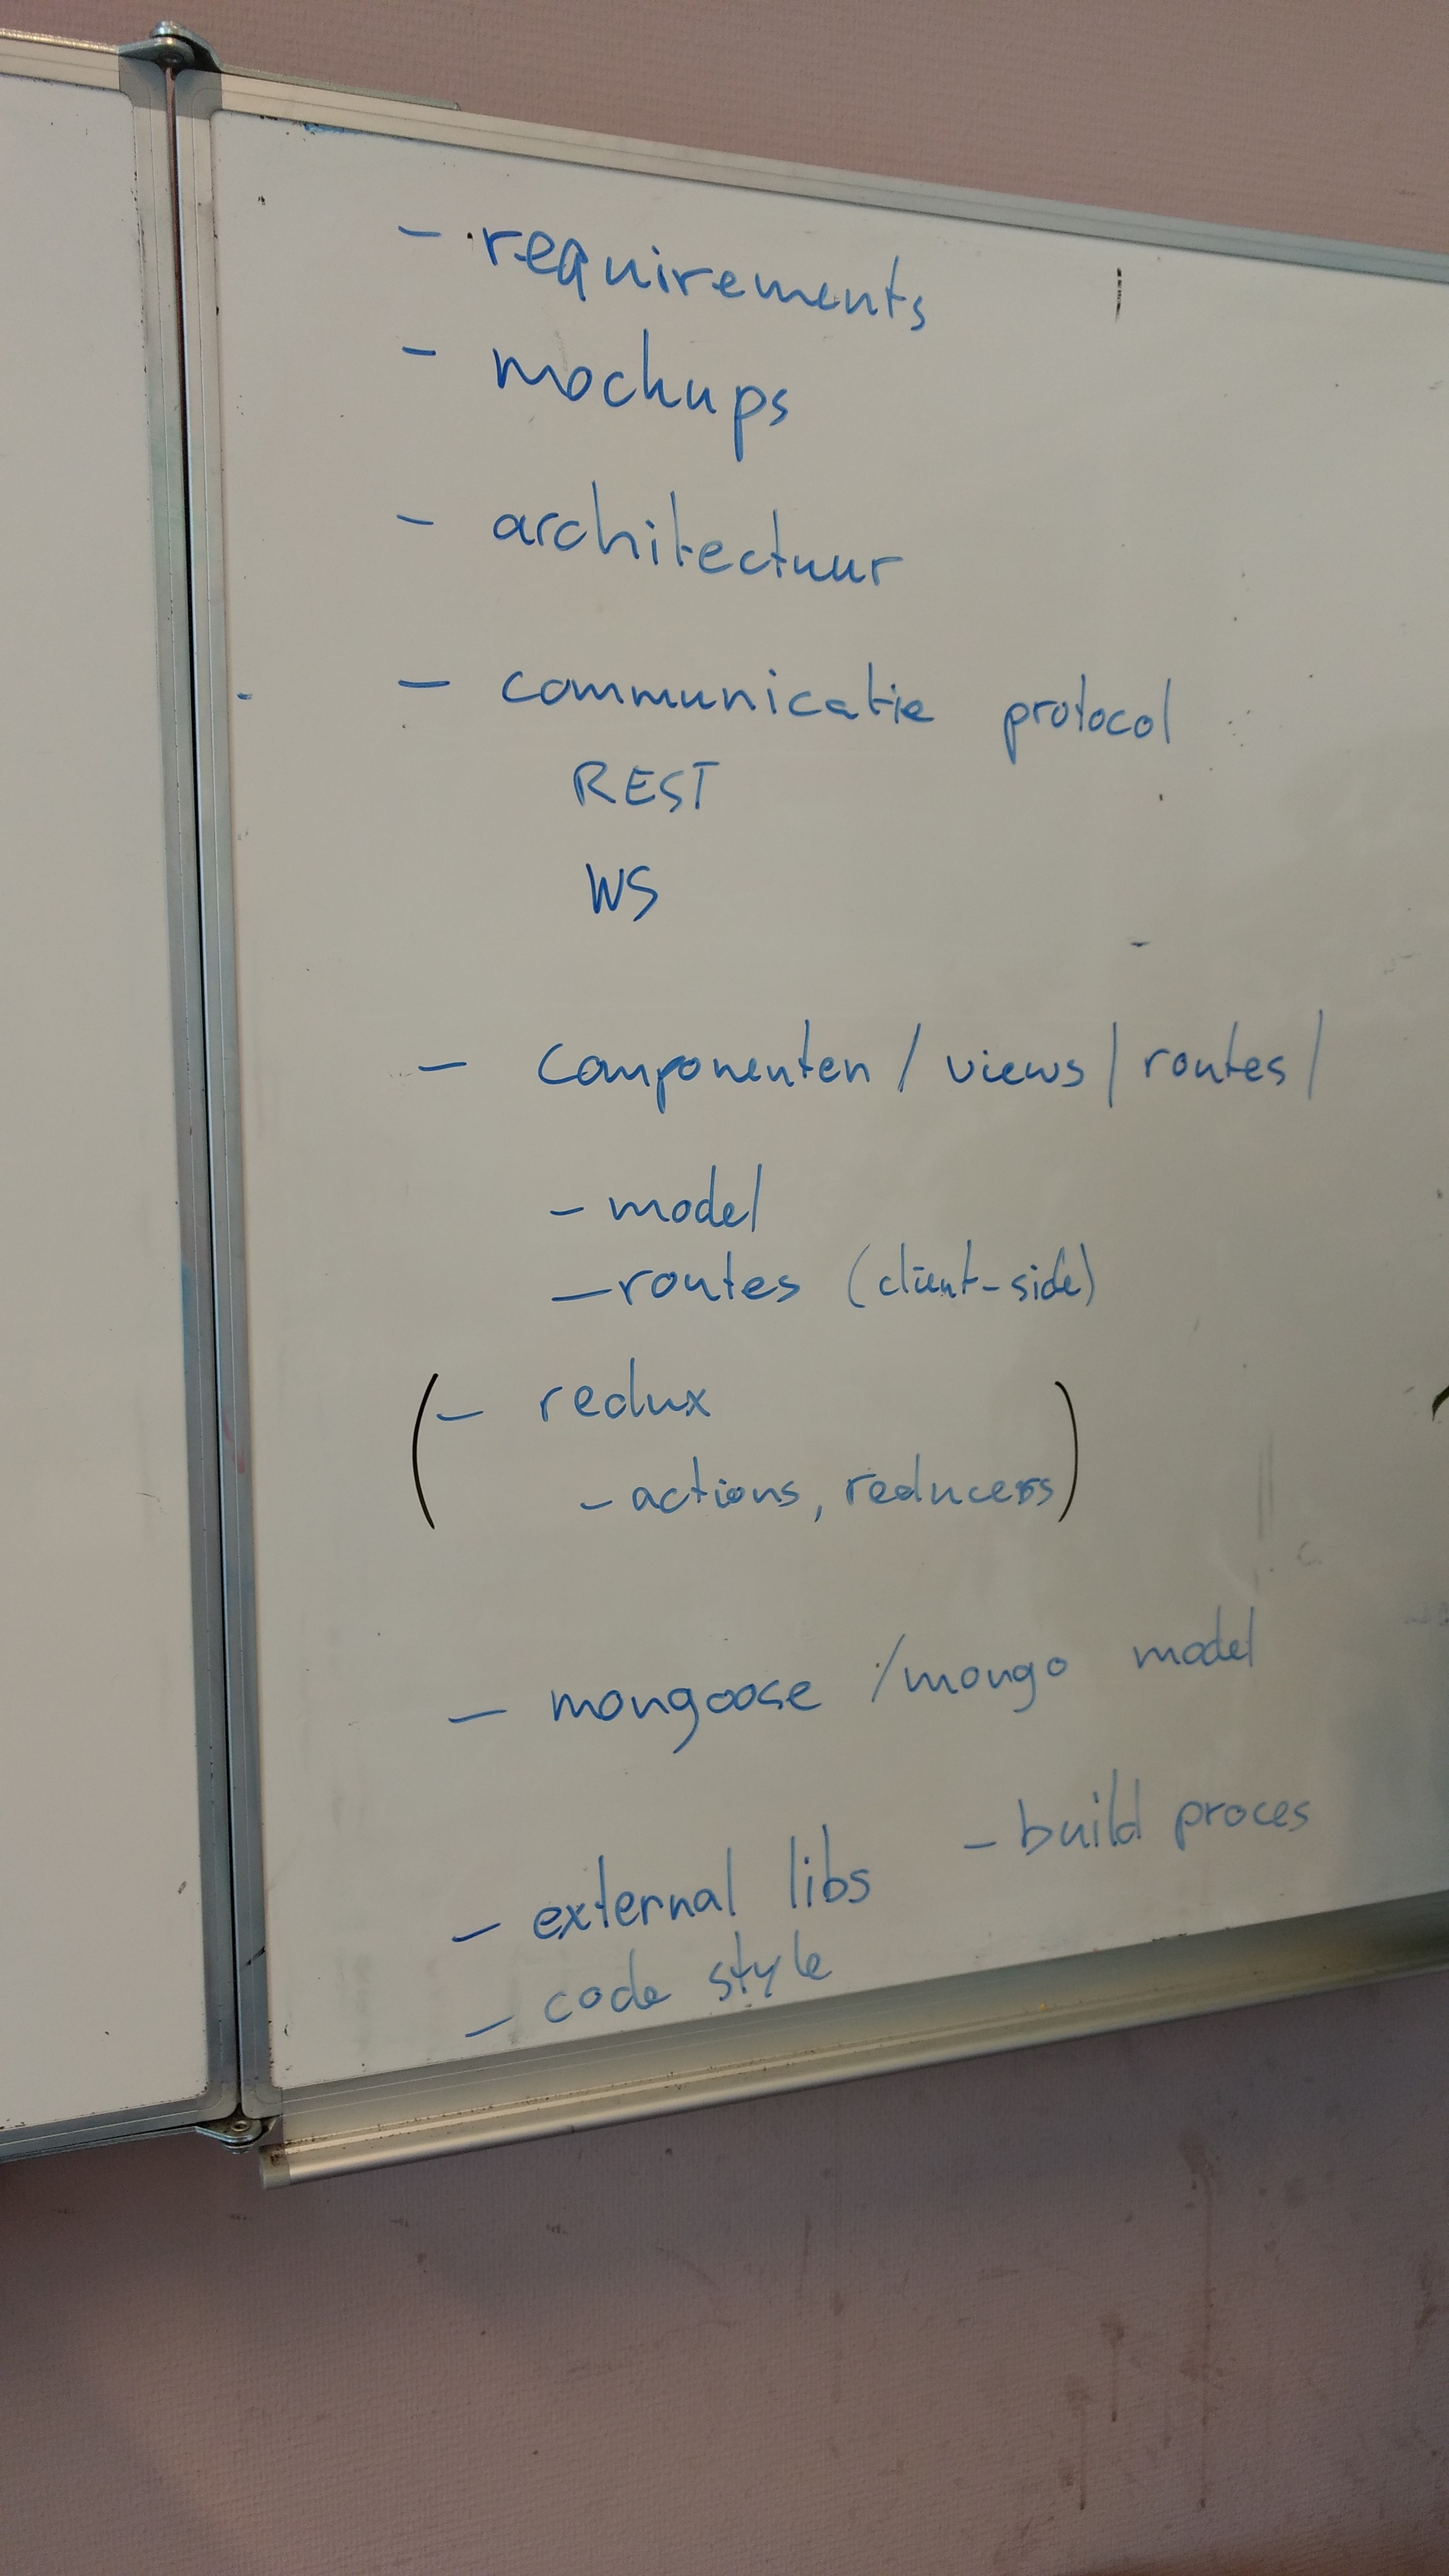 - requirements
- mockups
- architectuur
- communicatie protocol
REST
WS
- componenten / views / routes /
- model
- routes (client-side)
(- redux
- actions, reducers)
- mongoose / mongo model
- build proces
- external libs
- code style